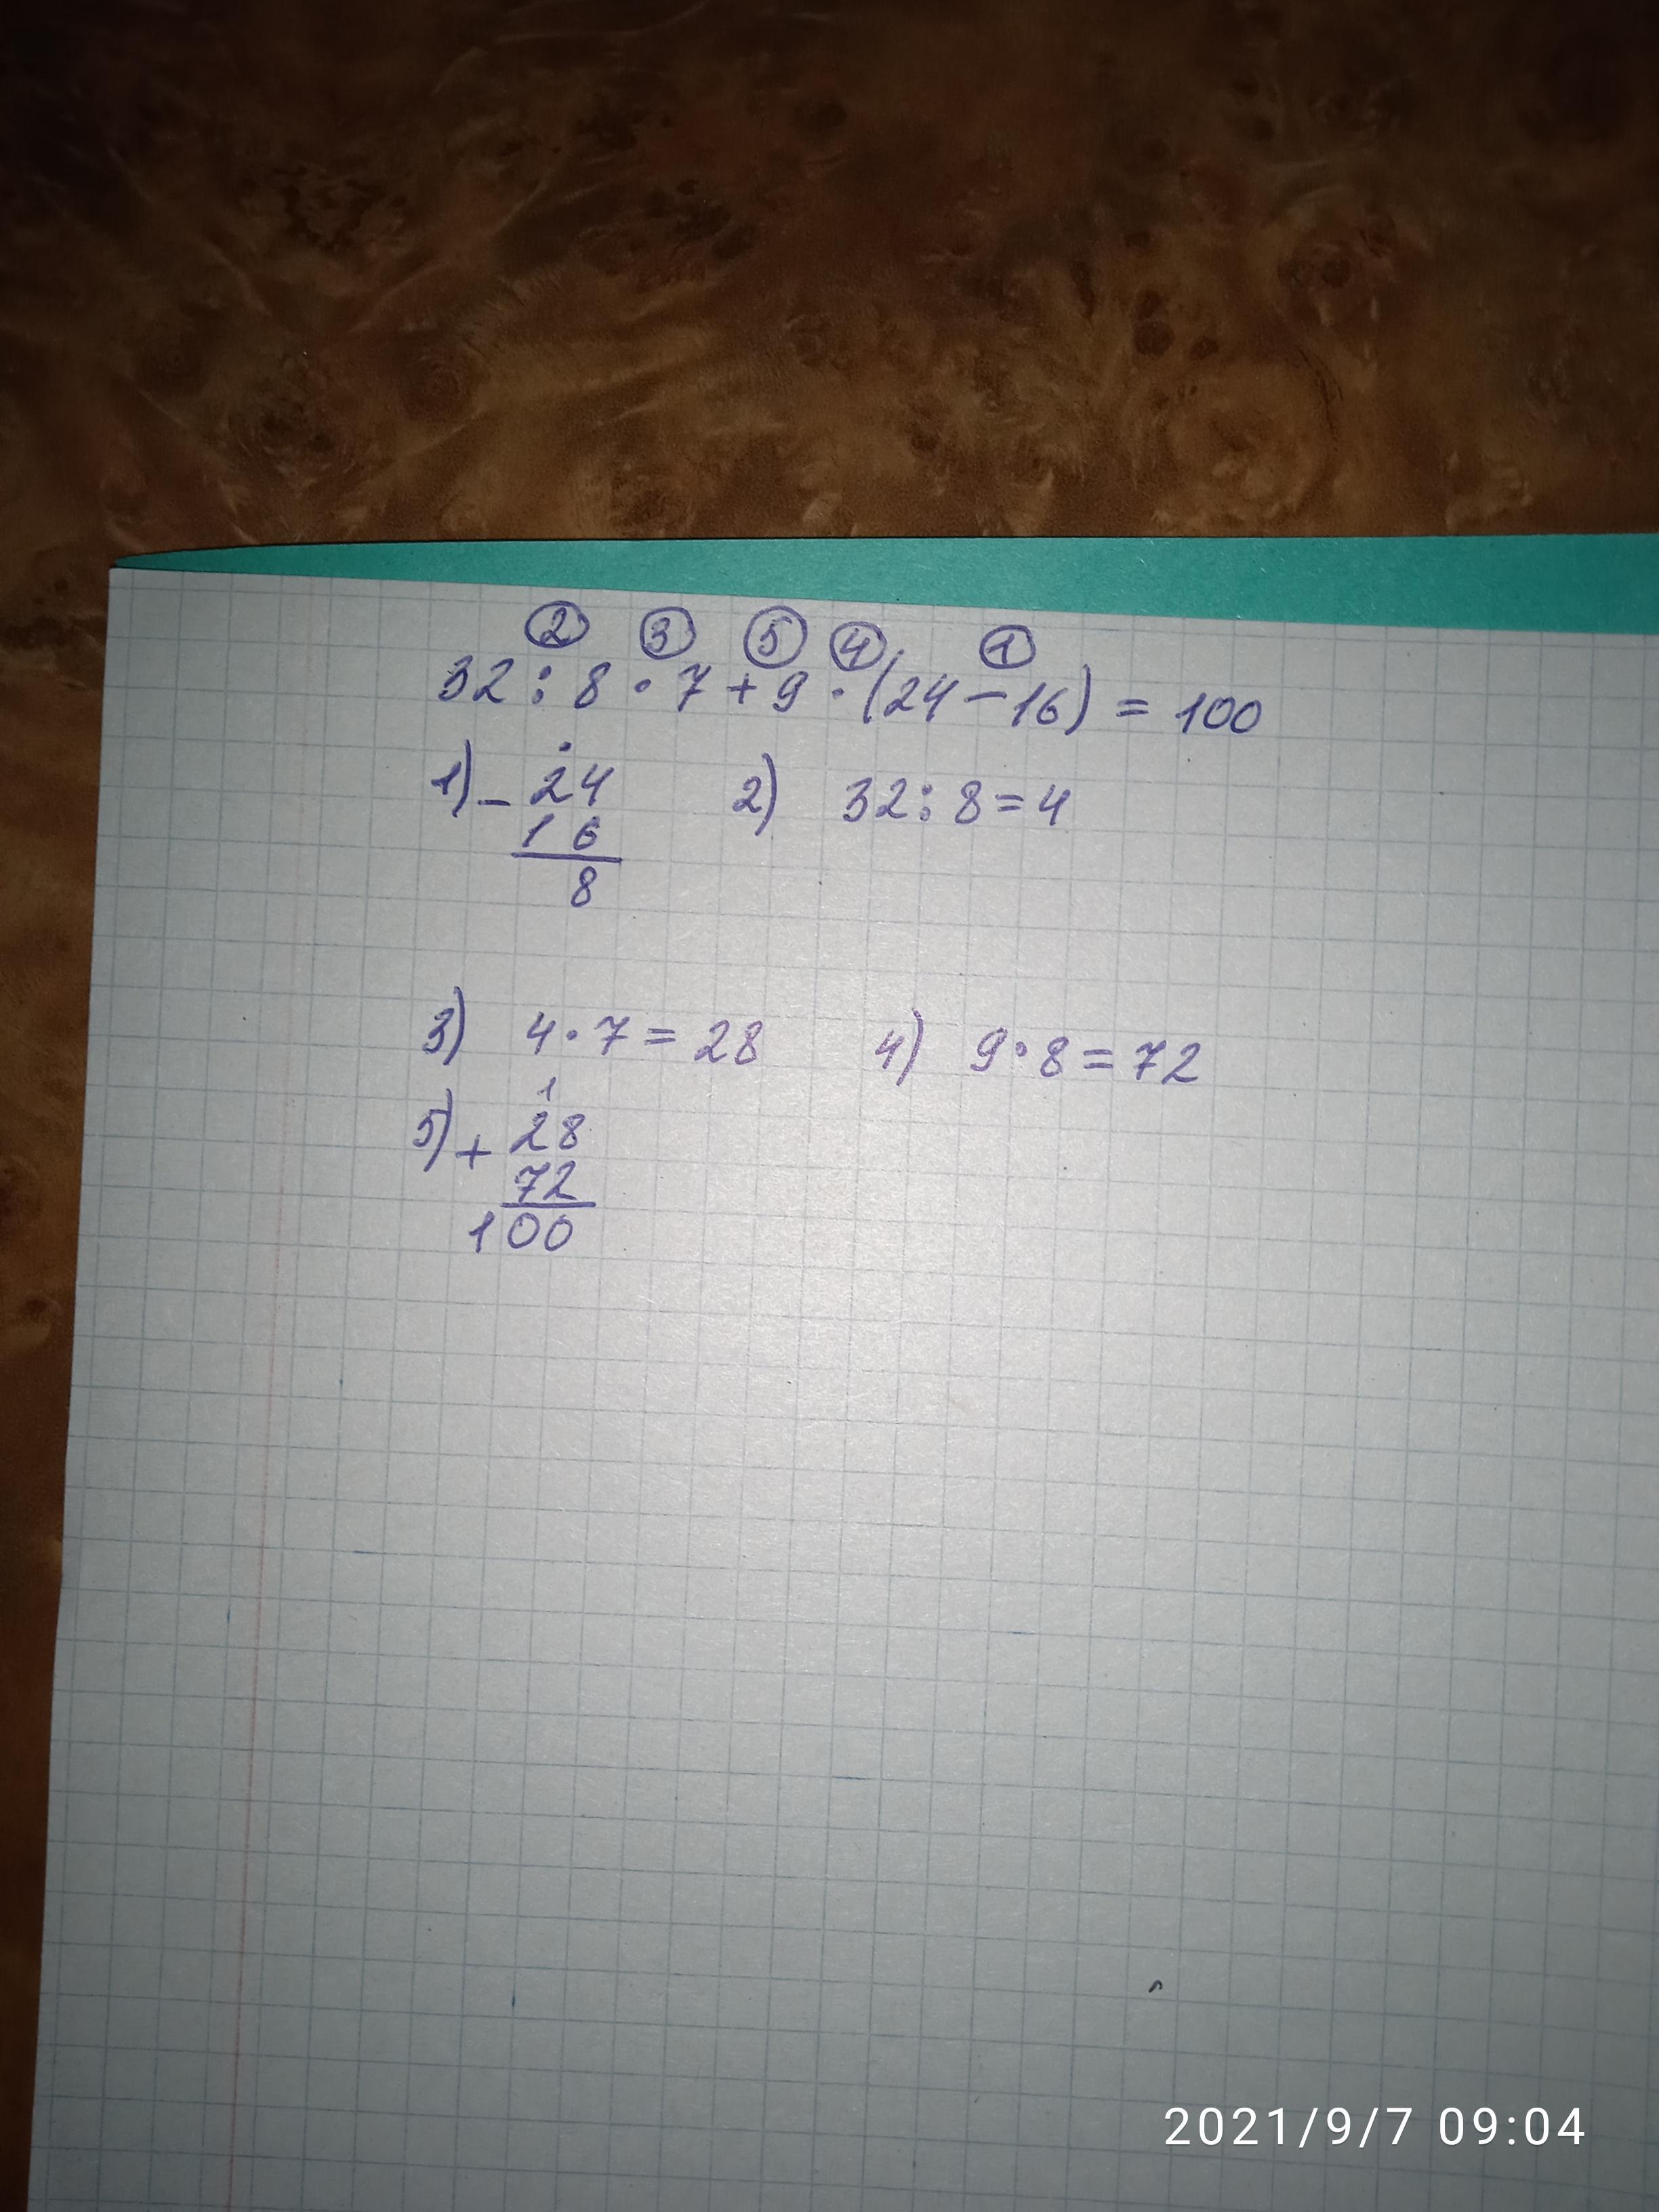 ② ③ ⑤ ④ ①
32 : 8 · 7 + 9 · (24 - 16) = 100
1) - 24 2) 32 : 8 = 4
16
8
3) 4 · 7 = 28 4) 9 · 8 = 72
1
5) + 28
72
100
2021/9/7 09:04